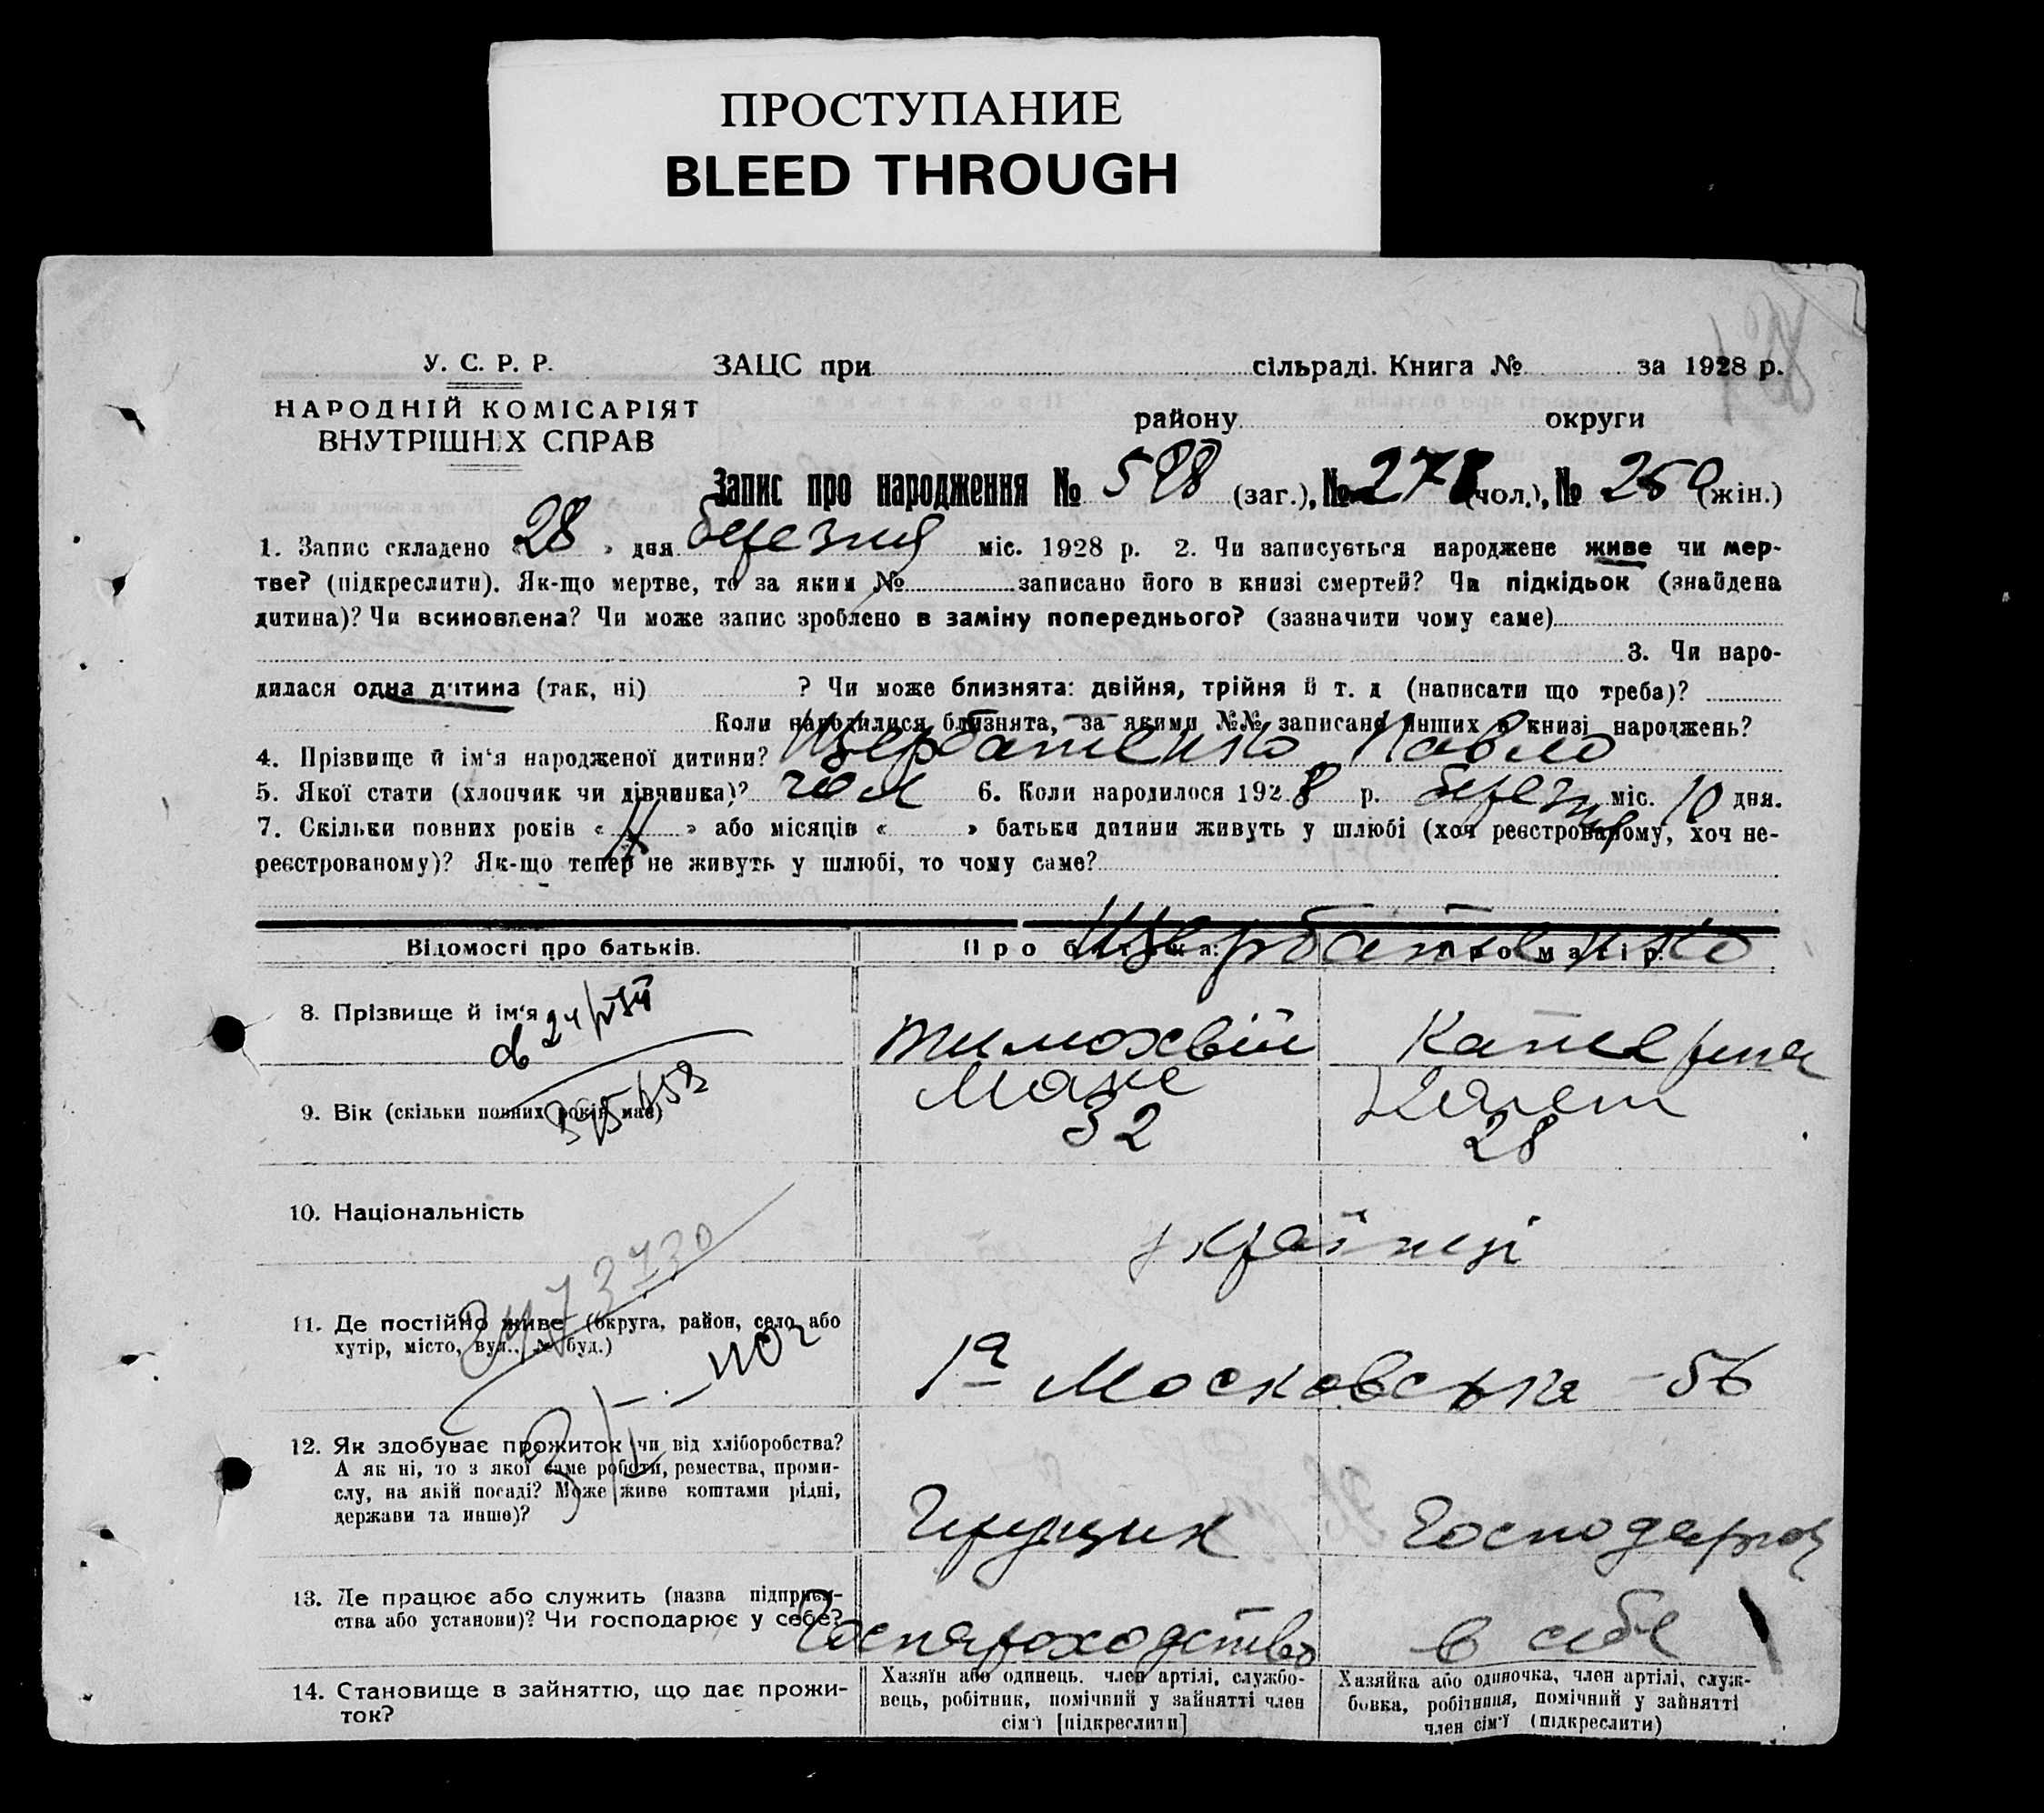 ПРОСТУПАНИЕ
BLEED THROUGH
У. С. Р. Р.
ЗАЦС при сільраді. Книга № за 1928 р.
НАРОДНІЙ КОМІСАРІЯТ
ВНУТРІШНІХ СПРАВ
району округи
Запис про народження № 528 (заг.), № 278 (чол.), № 250 (жін.)
1. Запис складено «28» дня березня міс. 1928 р. 2. Чи записується народжене живе чи мер-
тве? (підкреслити). Як-що мертве, то за яким № записано його в книзі смертей? Чи підкідьок (знайдена
дитина)? Чи всиновлена? Чи може запис зроблено в заміну попереднього? (зазначити чому саме)
3. Чи наро-
дилася одна дитина (так, ні) ? Чи може близнята: двійня, трійня й т. д (написати що треба)?
Коли народилися близнята, за якими №№ записано інших в книзі народжень?
4. Прізвище й ім'я народженої дитини? Щербатенко Павло
5. Якої стати (хлопчик чи дівчинка)? чол 6. Коли народилося 1928 р. березня міс. 10 дня.
7. Скільки повних років « » або місяців « » батьки дитини живуть у шлюбі (хоч реєстрованому, хоч не-
реєстрованому)? Як-що тепер не живуть у шлюбі, то чому саме?
Відомості про батьків. Про батька: Про матір:
Щербатенко
8. Прізвище й ім'я Тимохвій Катерина
9. Вік (скільки повних років має) 32 28
10. Національність українці
11. Де постійно живе (округа, район, село або
хутір, місто, вул., № буд.)
1а Московська - 56
12. Як здобуває прожиток (чи від хліборобства?
А як ні, то з якої саме роботи, ремества, проми-
слу, на якій посаді? Може живе коштами рідні,
держави та инше)?
Грущик Господарює
13. Де працює або служить (назва підприєм-
ства або установи)? Чи господарює у себе?
Госпароходство в себе
14. Становище в зайняттю, що дає прожи-
ток?
Хазяїн або одинець, член артілі, службо-
вець, робітник, помічний у зайнятті член
сім'ї [підкреслити]
Хазяйка або одиночка, член артілі, служ-
бовка, робітниця, помічний у зайнятті
член сім'ї (підкреслити)